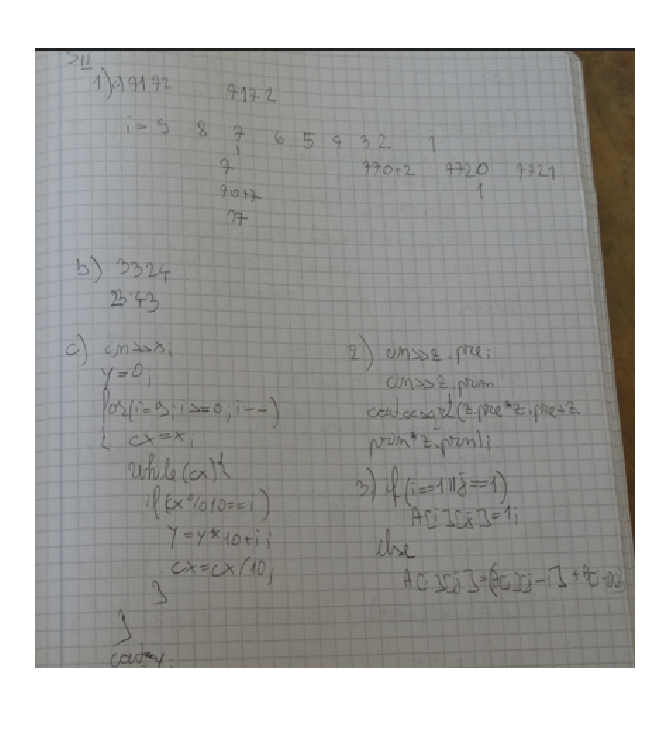 SII
1) a) 97172 7172
i= 9 8 7 6 5 4 3 2 1
7 770+2 7720 7721
70+7 1
77
b) 3324
2343
c) cin>>x;
y=0;
for(i=9;i>=0;i--)
{ cx=x;
while(cx){
if(cx%10==i)
y=y*10+i;
cx=cx/10;
}
}
cout<<y;
2) cin>>z.pre;
cin>>z.prim
cout<<sqrt(z.pre*z.pre+z.
prim*z.prim);
3) if(i==1||j==1)
A[i][j]=1;
else
A[i][j]=